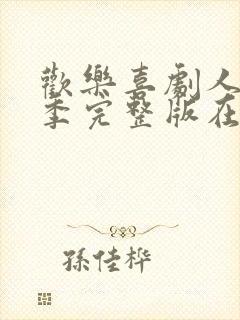 歡樂喜劇人
季完整版在
孫佳桦